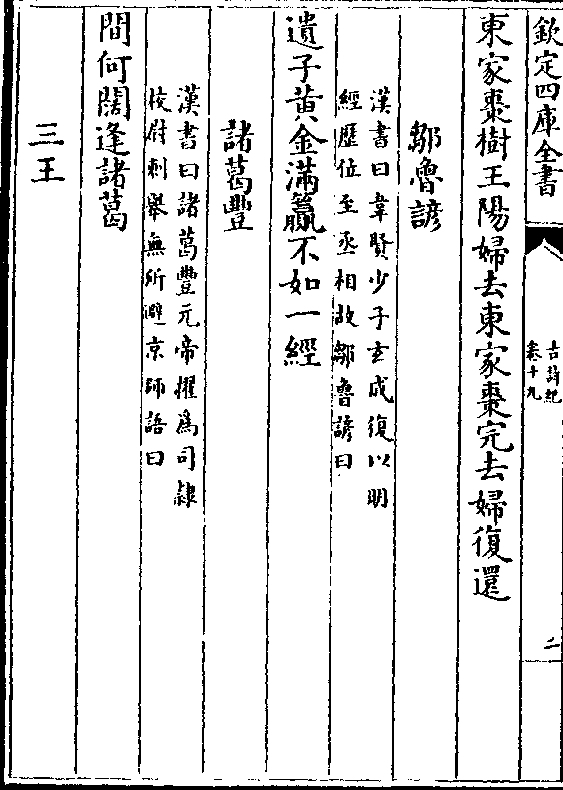 欽定四庫全書
古詩紀
卷十九
二
東家棗樹王陽婦去東家棗完去婦復還
鄒魯諺
漢書曰韋賢少子玄成復以明
經歷位至丞相故鄒魯諺曰
遺子黄金滿籯不如一經
諸葛豐
漢書曰諸葛豐元帝擢為司隸
校尉刺舉無所避京師語曰
間何闊逢諸葛
三王